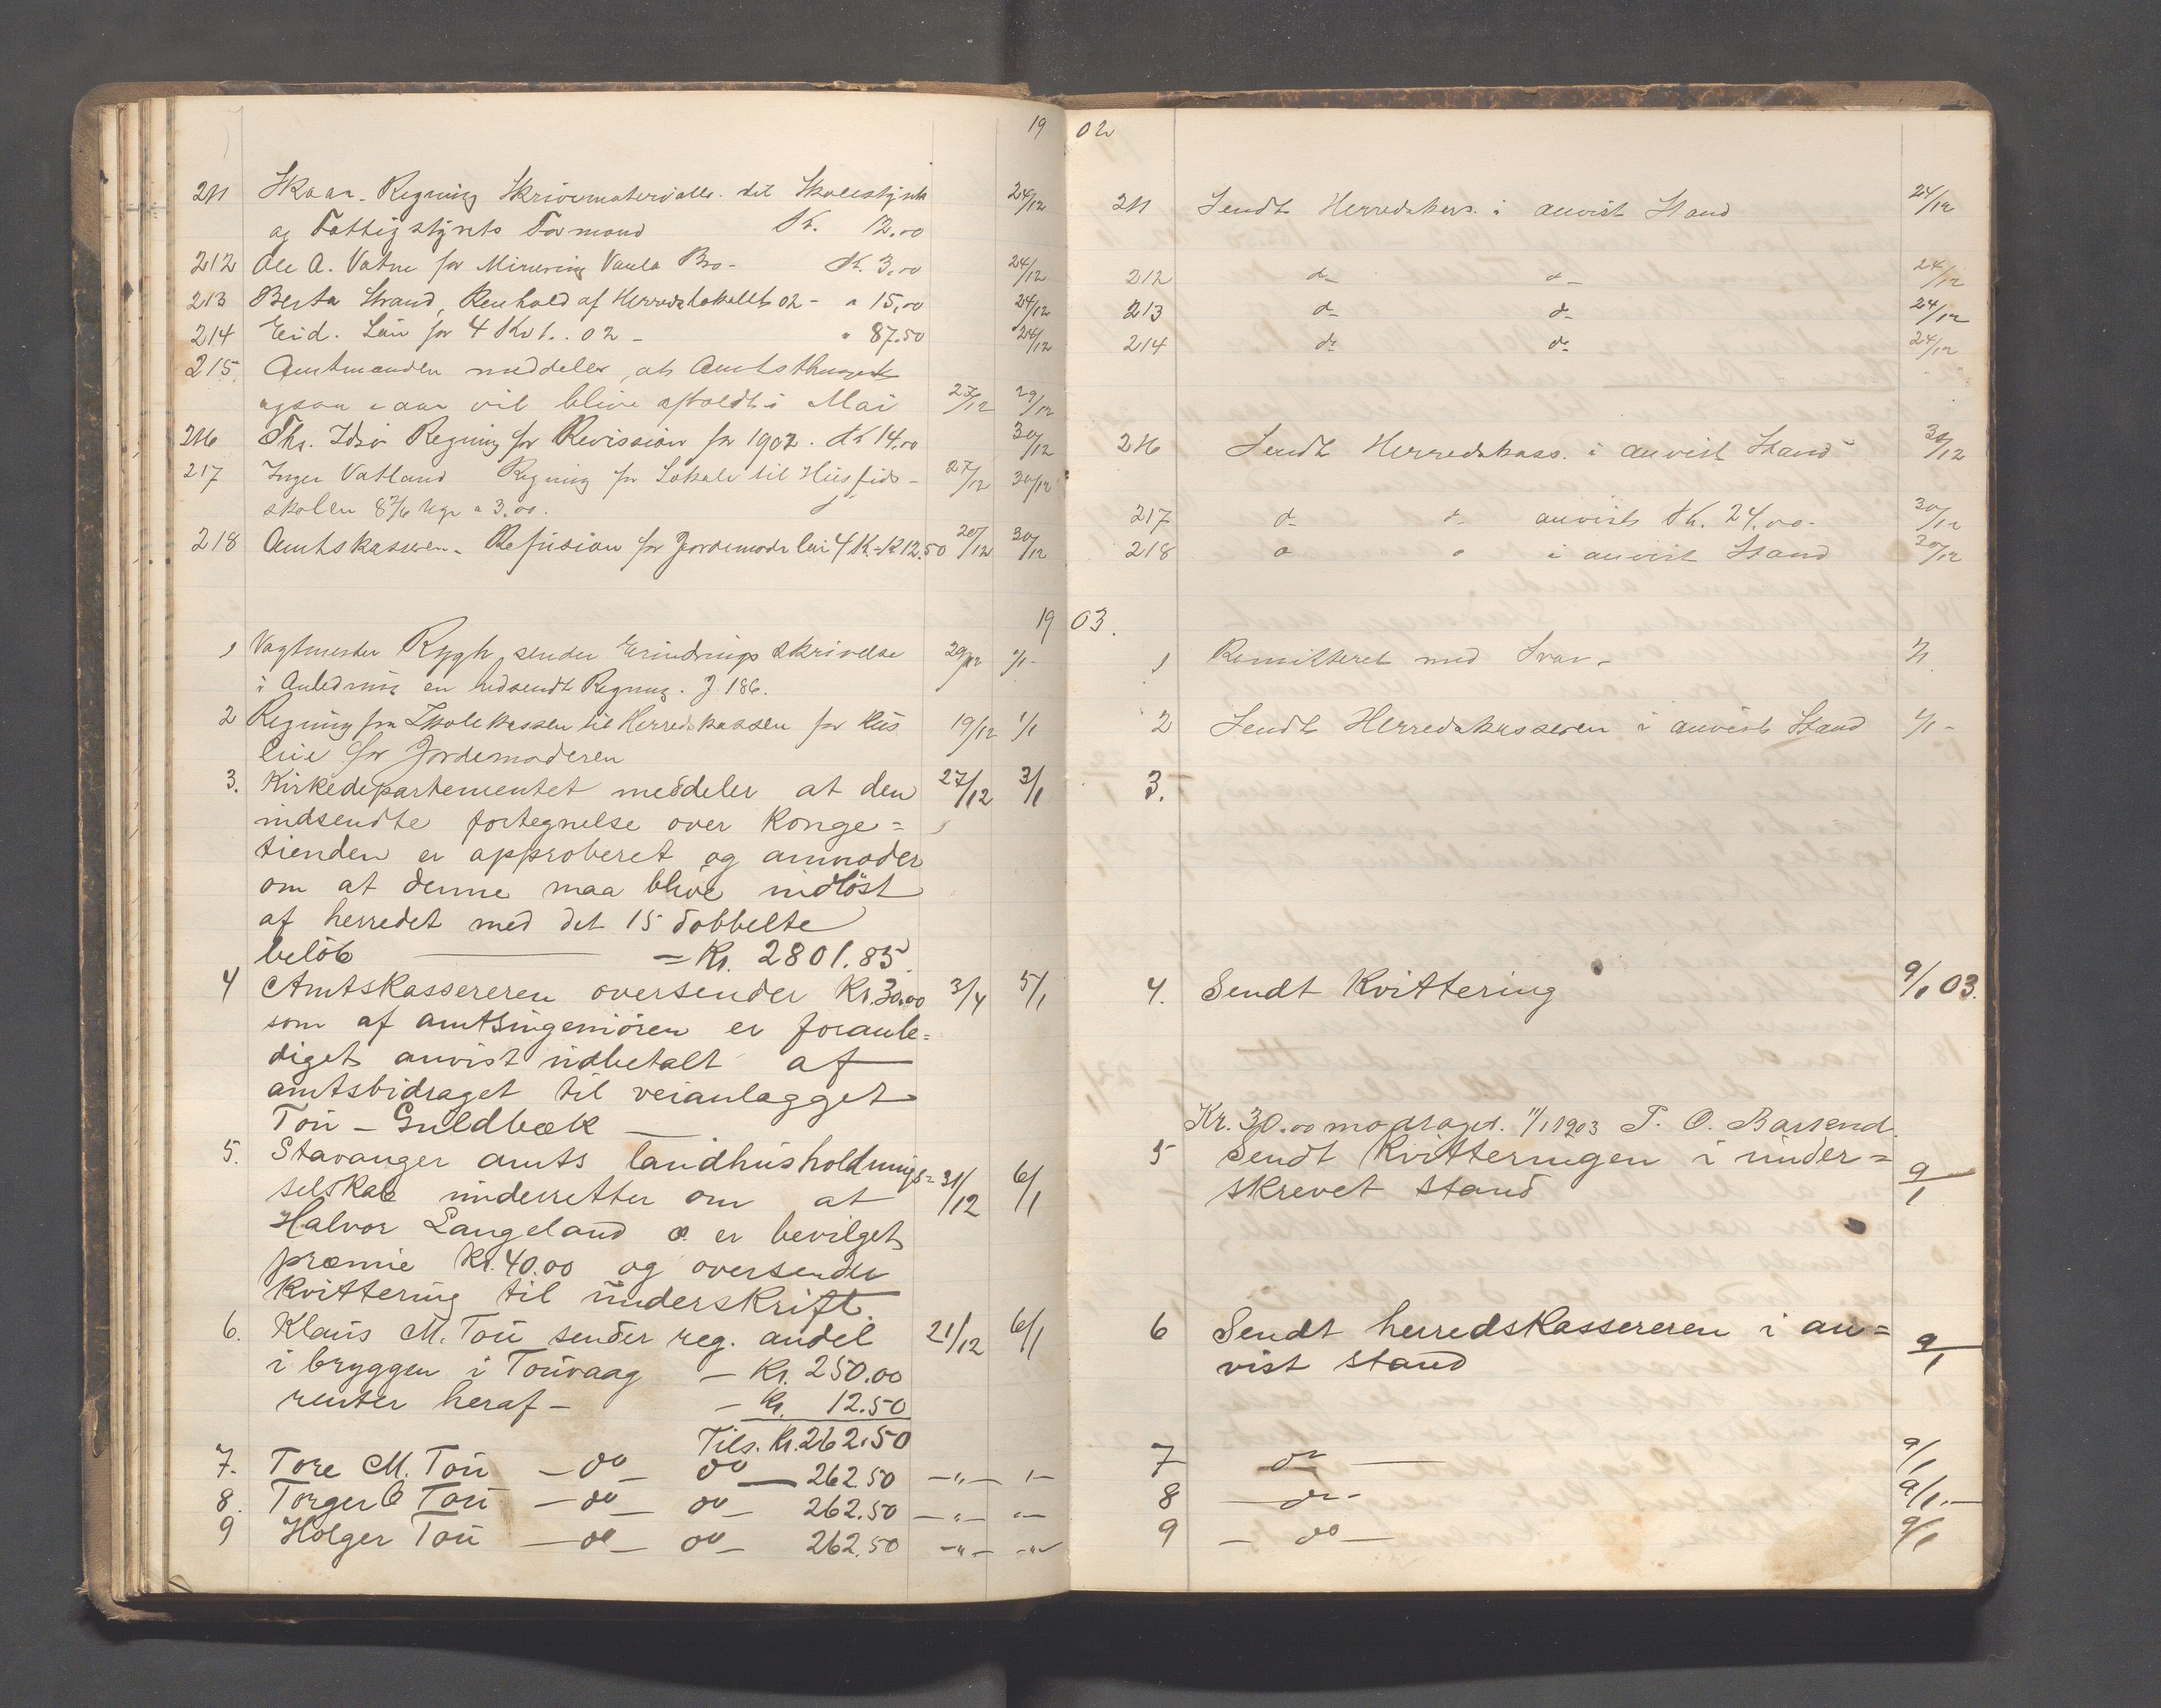 19
211 Skaar. Regning Skrivematerialle. til Skolestyret 24/12
og Fattigstyrets Formand Kr. 12.00
212 Ole A. Vatne for Minering Vaula Bro - Kr. 3.00 24/12
213 Berta Strand, Renhold af Herredslokalet 02 - " 15.00 24/12
214 Eid. Løn for 4 Kvt. 02 - " 87.50 24/12
215. Amtmanden meddeler, at Amtsthinget
ogsaa iaar vil blive afholdt i Mai 27/12 29/12
216 Ths. Idsø Regning for Revission for 1902. Kr 14.00 30/12
217 Inger Vatland Regning for Lokale til Husflids- 27/12 30/12
skolen 8 2/6 Uger a 3.00.
218 Amtskasseren. Refusion for Jordemoderløn 4 K. = K 12.50 20/12 30/12
19
1 Vagtmester Rygh sender Erindrings skrivelse 29/12 1/1 -
i Anledning en indsendt Regning. J 186.
2 Regning fra Skolekassen til Herredskassen for Hus 19/12 1/1
leie for Jordemoderen
3. Kirkedepartementet meddeler at den 27/12 3/1
indsendte fortegnelse over Konge=
tienden er approberet og anmoder
om at denne maa blive indløst
af herredet med det 15 dobbelte
beløb — = Kr. 2801.85.
4 Amtskassereren oversender Kr. 30.00 3/4 5/1
som af amtsingeniøren er foranle=
diget anvist udbetalt af
amtsbidraget til veianlægget
Tou - Guldbæk —
5. Stavanger amts landhusholdnings= 31/12 6/1
selskab underretter om at
Halvor Langeland er bevilget
præmie Kr. 40.00 og oversender
Kvittering til underskrift.
6. Klaus M. Tou sender reg. andel 21/12 6/1
i bryggen i Touvaag - Kr. 250.00
renter heraf - - Kr. 12.50
Tils. Kr. 262.50
7. Tore M. Tou - do - do - 262.50 - " - " -
8. Torger O Tou - do - do - 262.50 - " - " -
9 Holger Tou - do - do - 262.50 - " - - " -
02
211 Sendt Herredskass. i anvist Stand 24/12
212 do do - 24/12
213 do do 24/12
214 do do 24/12
216 Sendt Herredskass. i anvist Stand 30/12
217 do do anvist Kr. 24.00 - 30/12
218 " " i anvist Stand 30/12
03.
1 Remitteret med Svar - 2/1
2 Sendt Herredskasseren i anvist Stand 1/1 -
3.
4. Sendt Kvittering 9/1 03.
Kr. 30.00 modtaget. 11/1 1903 T. O.
5 Sendt Kvitteringen i under=
skrevet stand 9/1
6 Sendt herredskassereren i an=
vist stand 9/1
7 do — 9/1
8 - do - 9/1 -
9 - do - 9/1